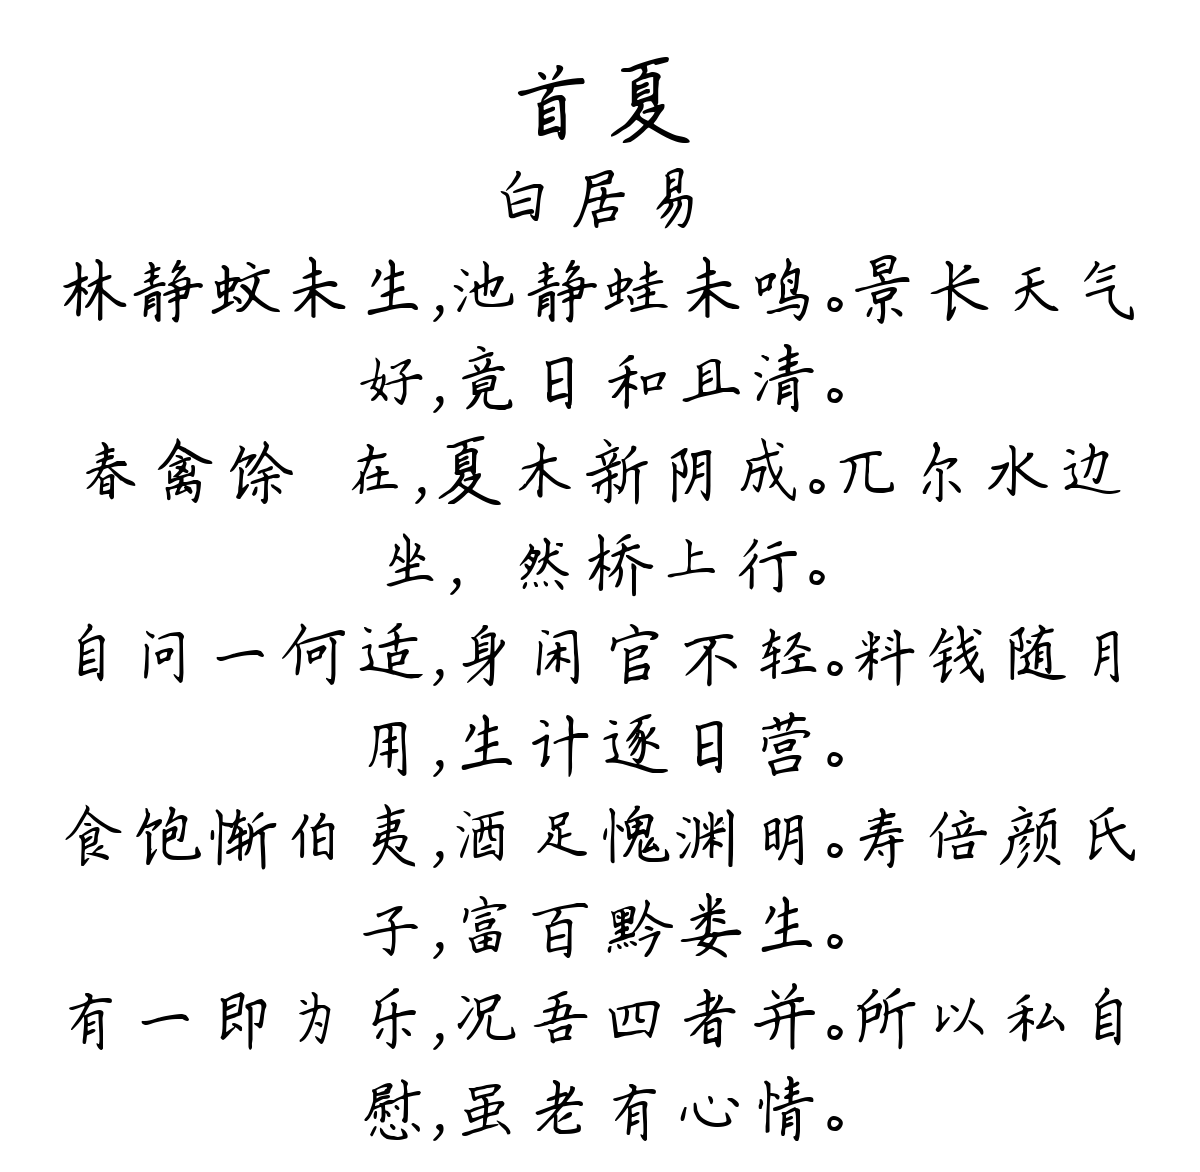 首夏
白居易
林静蚊未生,池静蛙未鸣。景长天气
好,竟日和且清。
春禽馀 在,夏木新阴成。兀尔水边
坐, 然桥上行。
自问一何适,身闲官不轻。料钱随月
用,生计逐日营。
食饱惭伯夷,酒足愧渊明。寿倍颜氏
子,富百黔娄生。
有一即为乐,况吾四者并。所以私自
慰,虽老有心情。